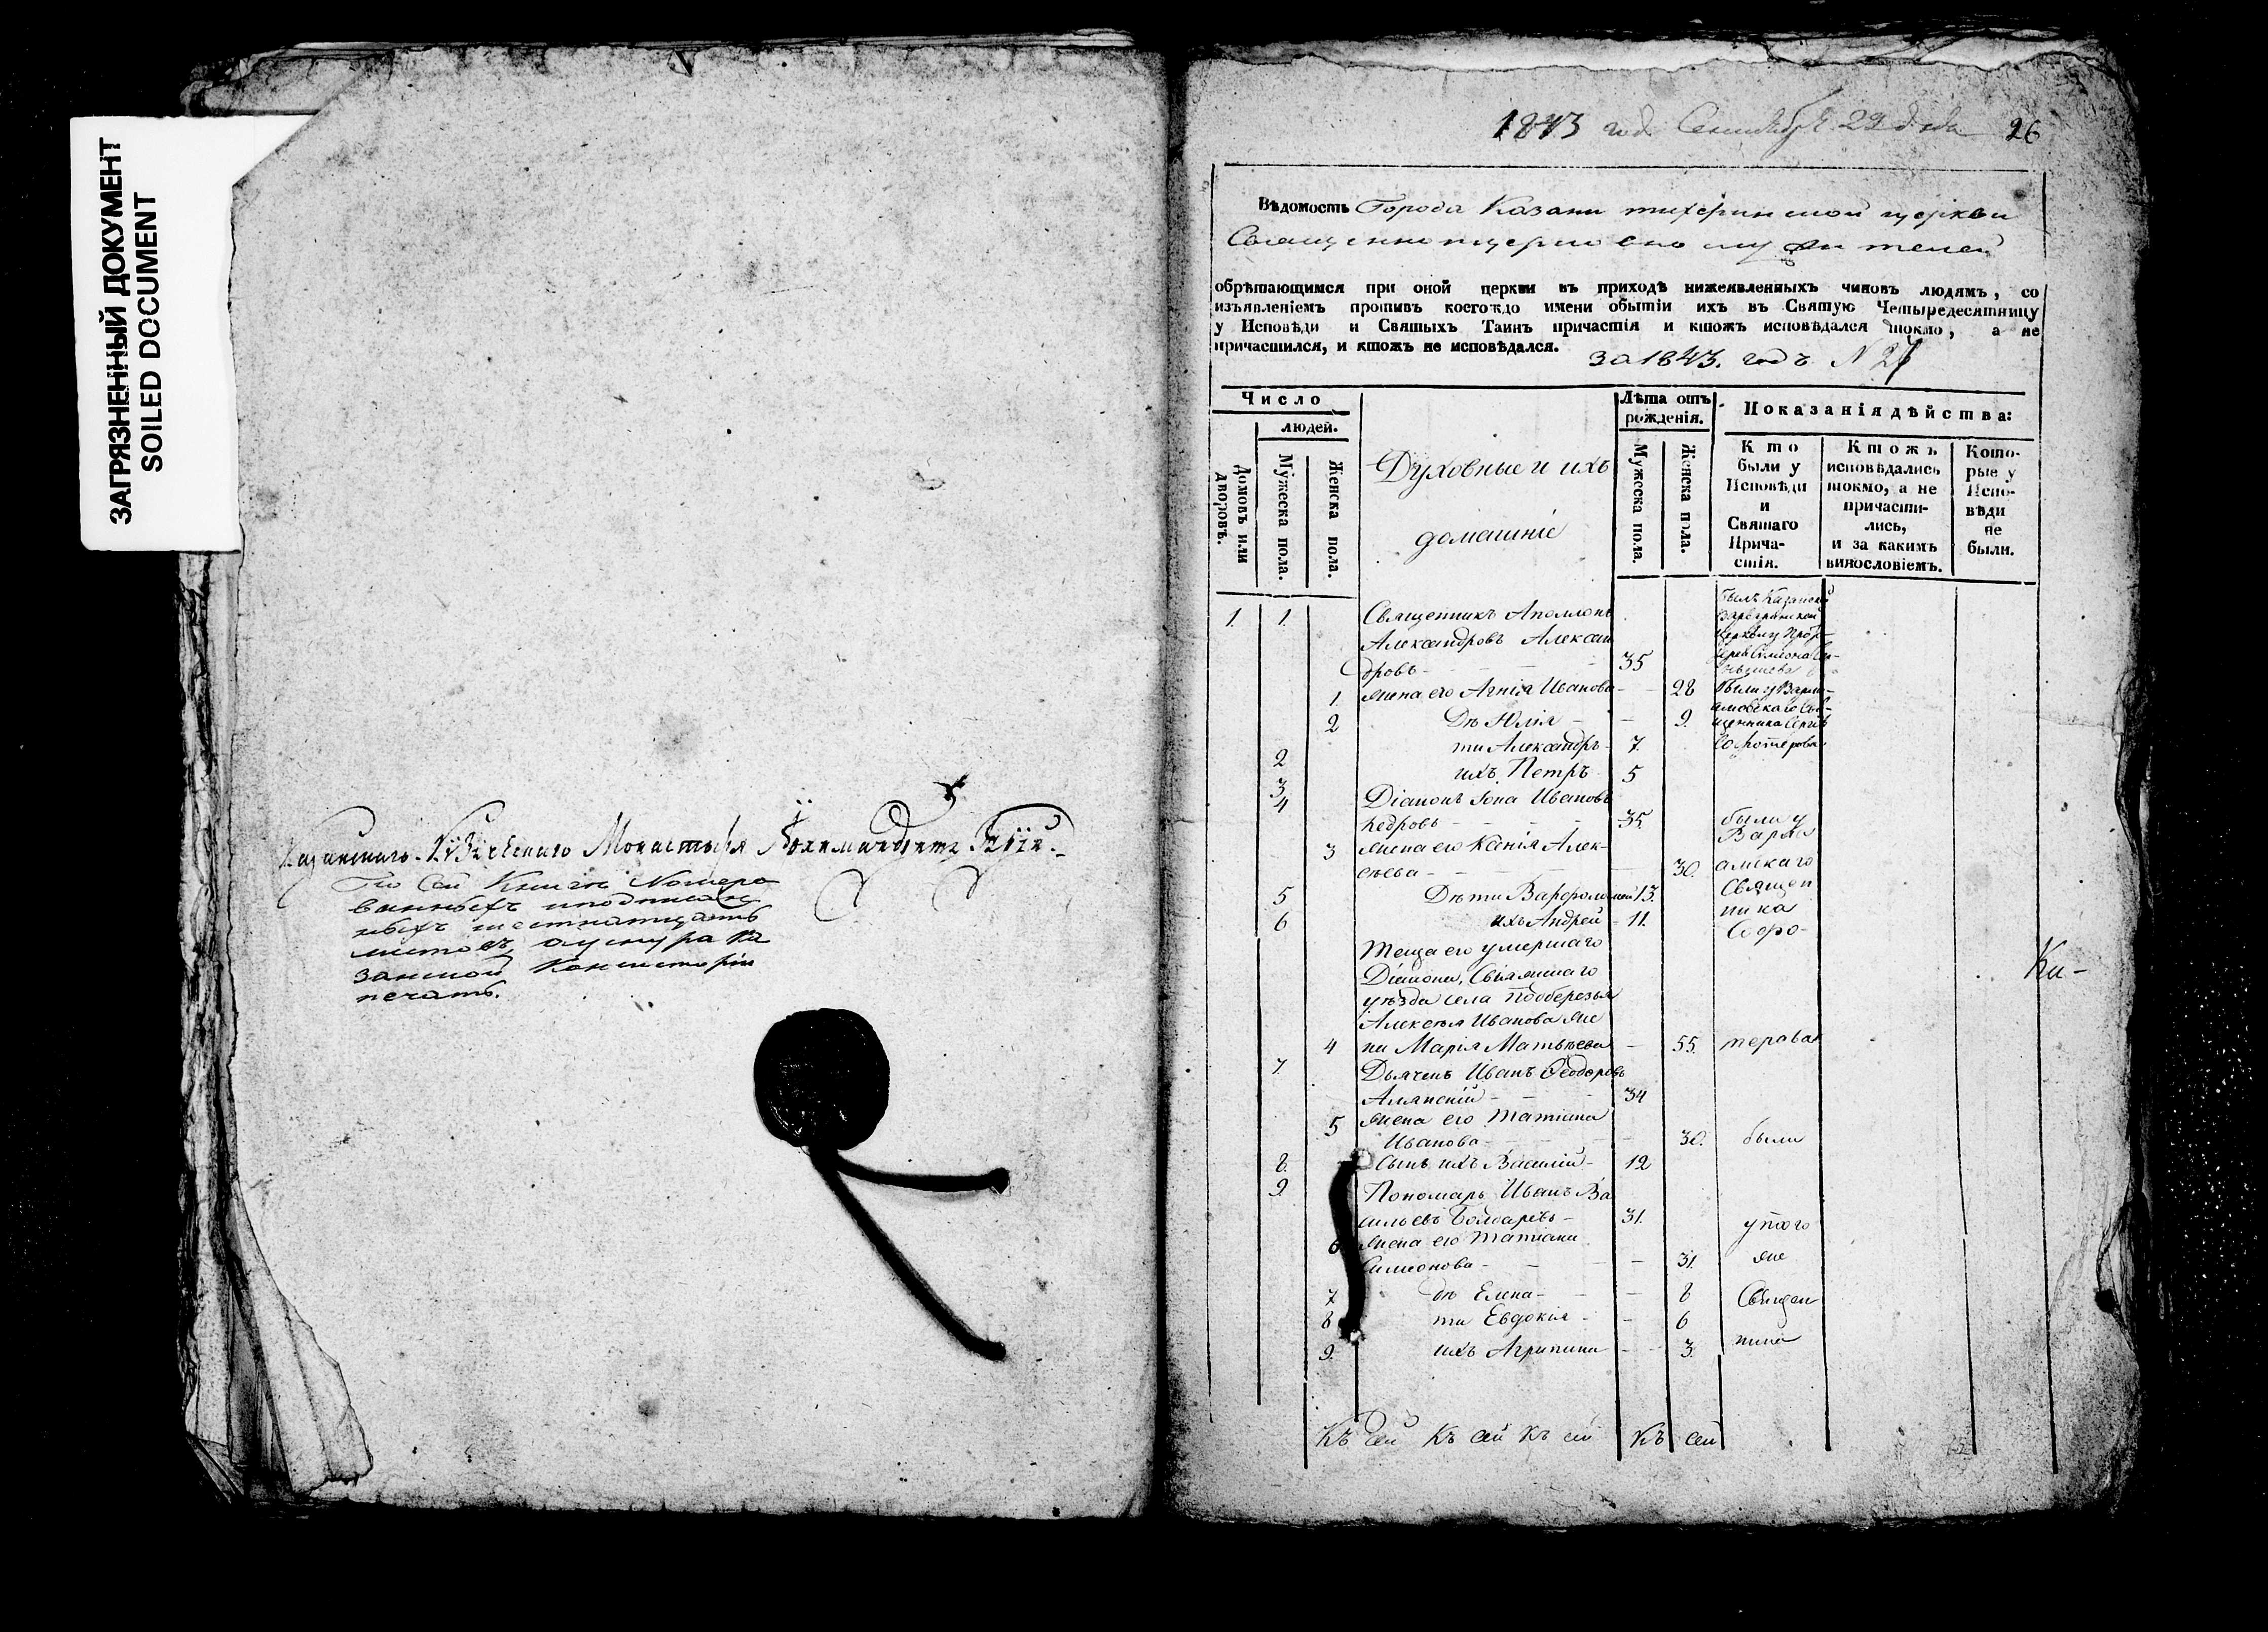 ЗАГРЯЗНЕННЫЙ ДОКУМЕНТ
SOILED DOCUMENT
Монастыря
По сей Книгѣ Номеро
ванныхъ и подписан
ныхъ шестнатцать
листовъ, а у снура Ка
занской Консисторіи
печать.
1843 год Сентября 29 д 26
Вѣдомость Города Казани тихфинской церкви
Священно церковно служителей
обрѣтающимся при оной церкви въ приходѣ нижеявленныхъ чиновъ людямъ, со
изъявленіемъ противъ коегождо имени обытіи ихъ въ Святую Четыредесятницу
у Исповѣди и Святыхъ Таинъ причастія и ктожъ исповѣдался токмо, а не
причастился, и ктожъ не исповѣдался. за 1843. годъ N
Число
людей.
Домовъ или дворовъ.
Мужеска пола.
Женска пола.
Духовные и ихъ
домашніе
Лѣта отъ
рожденія.
Мужеска пола.
Женска пола.
Показанія дѣйства:
Кто
были у
Исповѣди
и
Святаго
Прича-
стія.
Ктожъ
исповѣдались
токмо, а не
причасти-
лись,
и за какимъ
винословіемъ.
Кото-
рые у
Испо-
вѣди
не
были.
1. 1. Священникъ Аполлонъ
Александровъ Алексан
дровъ - 35
1 жена его Агнія Иванова - 28
2 Дѣ Юлія - 9.
2 ти Александръ 7.
3 ихъ Петръ 5
4 Діаконъ Іона Ивановъ
Кедровъ - 35. были у
3 жена его Ксенія Алек-
сѣева - 30.
5 Дѣти Варфоломей 13. Священ
6 ихъ Андрей - 11. ника
Теща его умершаго
Діакона, Свіяжскаго
уѣзда села Подберезья
Алексѣя Иванова же
4 на Марія Матвѣева - 55.
7. Дьячекъ Иванъ Ѳеодоровъ
34
5 жена его Татіана
Иванова - 30. были
8. Сынъ ихъ Василій - 12
9. Пономарь Иванъ Ва
сильевъ Болгаревъ - 31. у того
6 жена его Татіана
Симеонова - 31. же
7 дѣ Елена - 8 Священ
8 ти Евдокія - 6
9. ихъ Агрипина - 3. ника
Ка-
Къ сей Къ сей Къ сей Къ сей